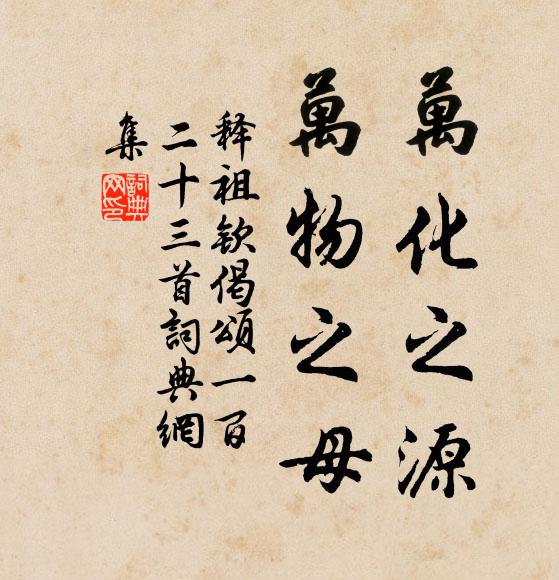 萬化之源
萬物之母
释祖钦偈頌一百
二十三首詞典網
集
詞典
网印